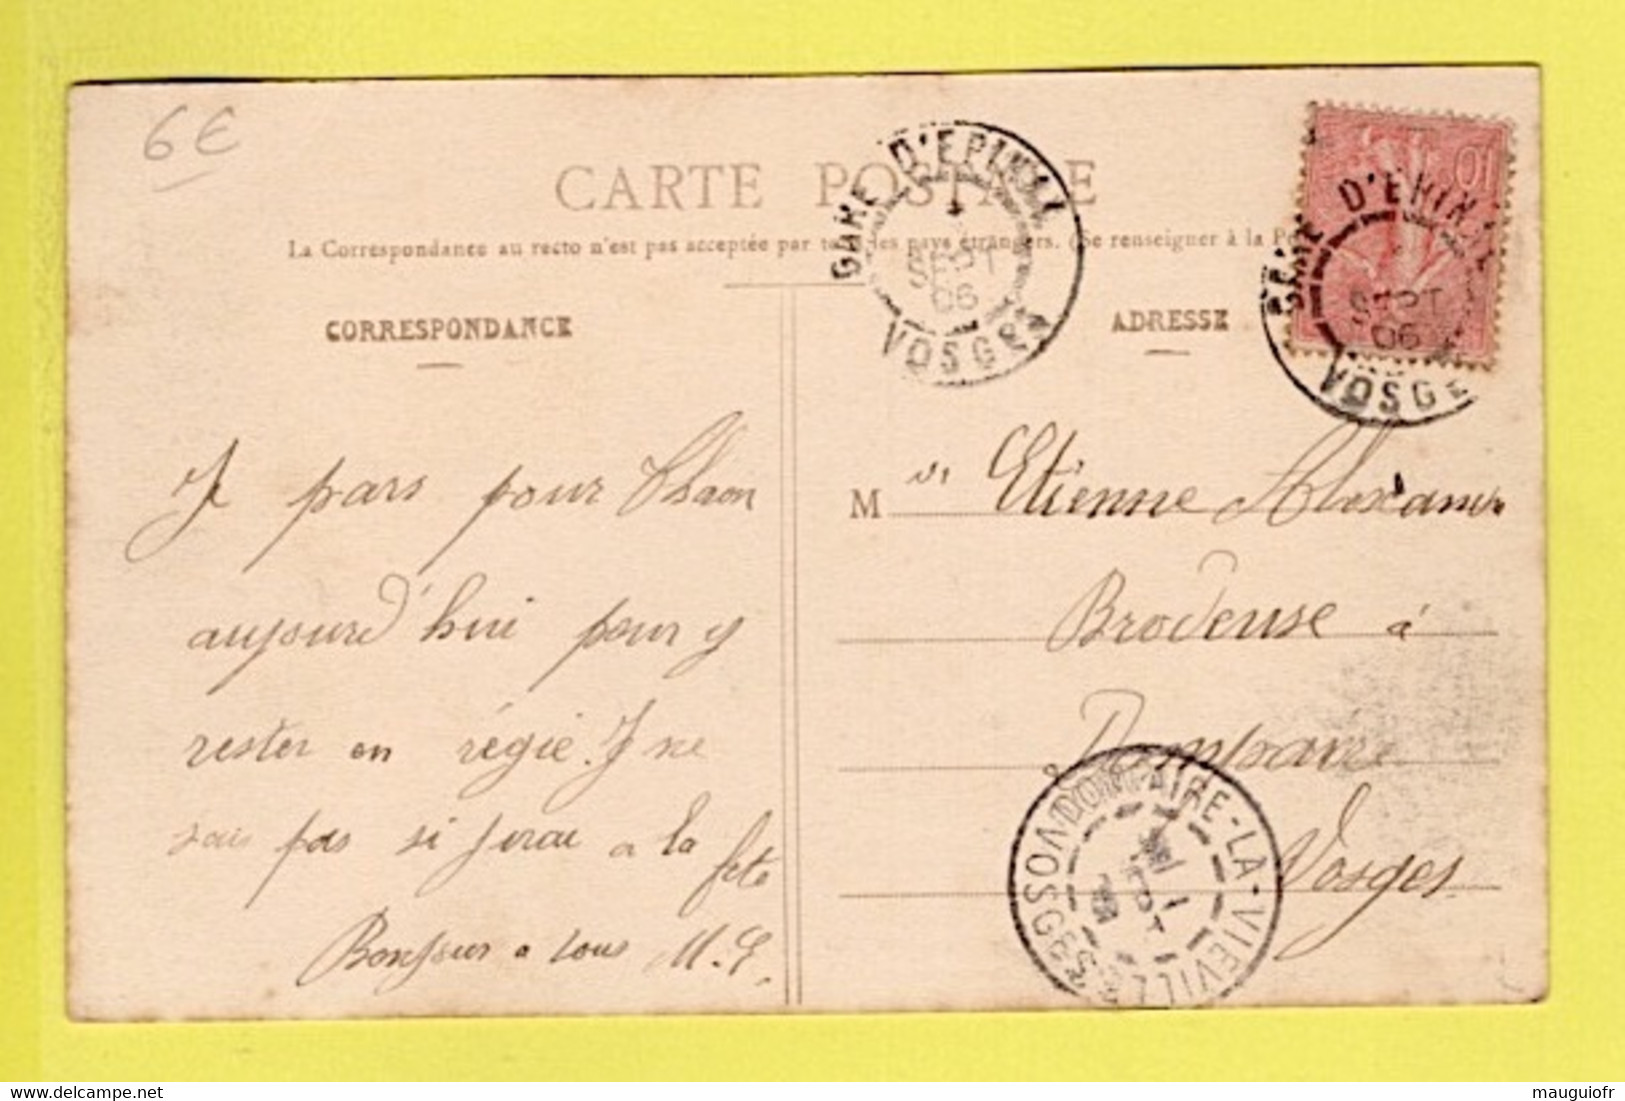 6€
CARTE POSTALE
La Correspondance au recto n'est pas acceptée par tous les pays étrangers. (Se renseigner à la Po
CORRESPONDANCE
Je pars pour Thaon
aujourd'hui pour y
rester en régie. Je ne
sais pas si j'irai a la
fete
Bonjour a tous M. E.
ADRESSE
M
Etienne
Brodeuse à
Dompaire
Vosges
GARE D'EPINAL
SEPT
06
VOSGES
10
GARE D'EPINAL
SEPT
06
VOSGES
DOMPAIRE-LA-VIEVILLE
VOSGES
mauguiofr